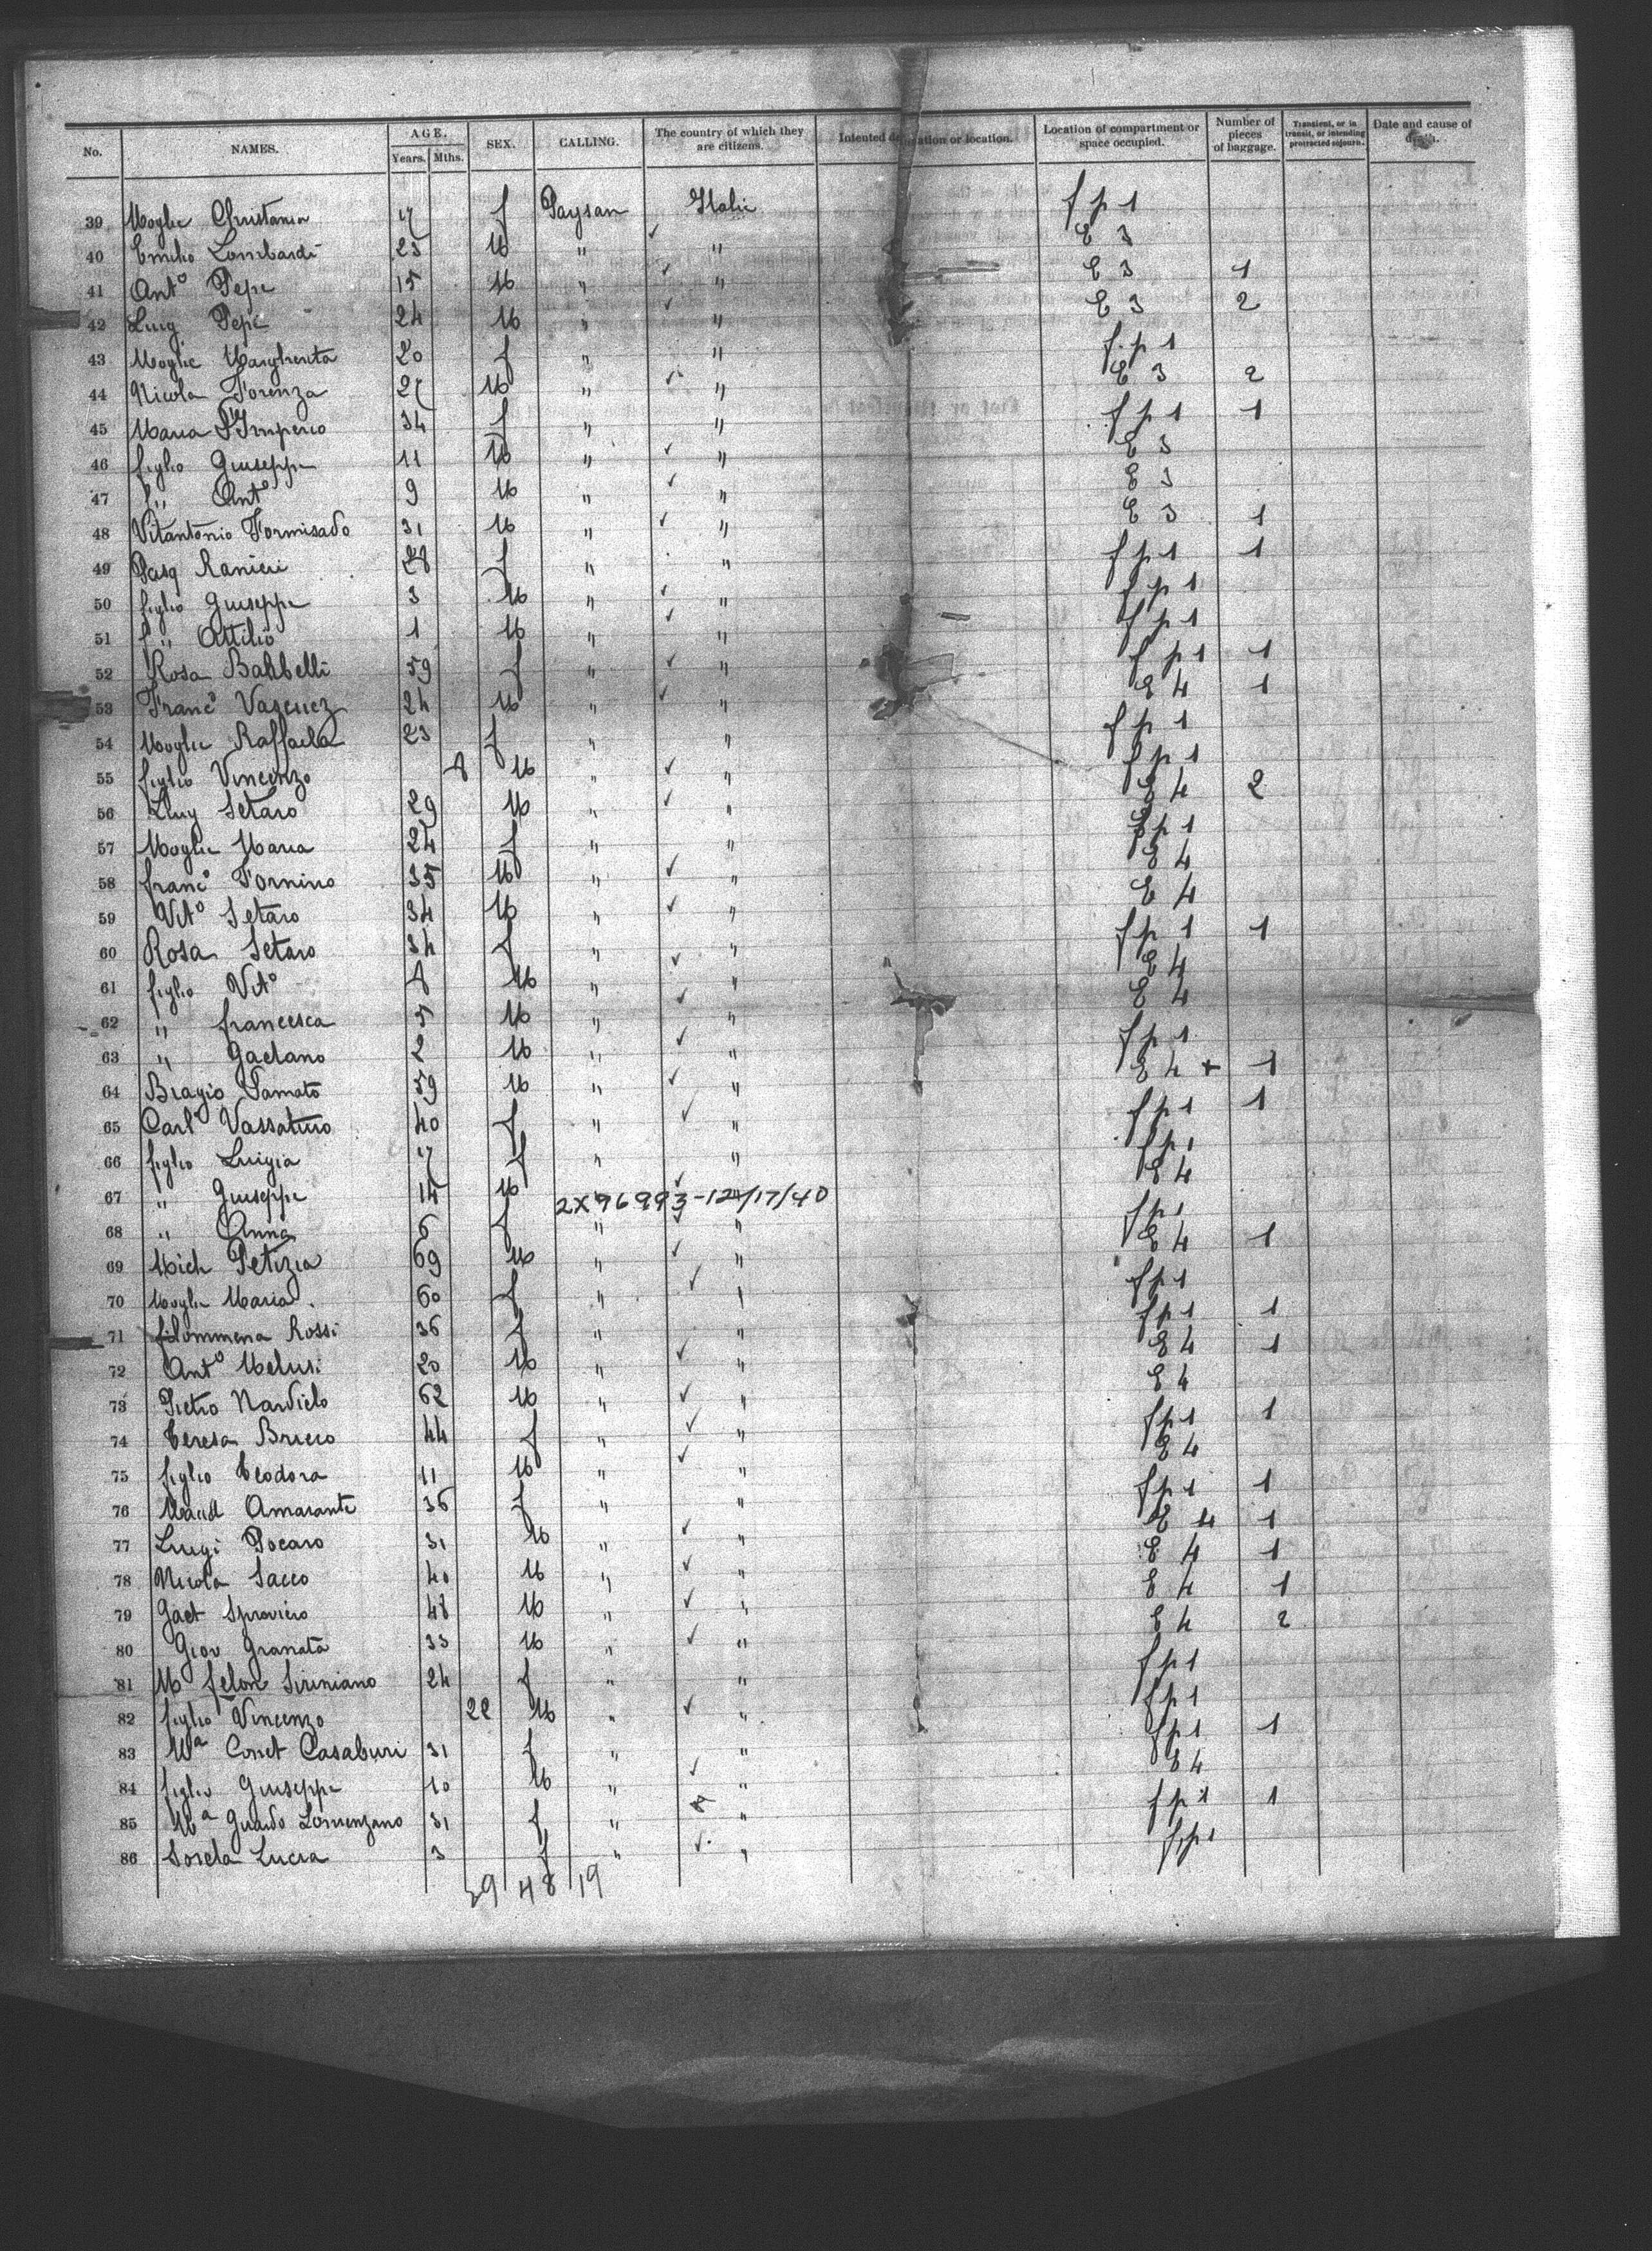 No. NAMES. AGE. Years. Mths. SEX. CALLING. The country of which they are citizens. Intented destination or location. Location of compartment or space occupied. Number of pieces of baggage. Transient, or in transit, or intending protracted sojourn. Date and cause of death.
39 Moglie Christiana f Paysan Italie f p 1
40 Emilio Lombardi 23 M " " E 3
41 Antº Pepe 15 M " " E 3 1
42 Luig Pepe 24 M " " E 3 2
43 Moglie Margherita 20 f " " f p 1
44 Nicola Forenza 27 M " " E 3 2
45 Maria D'Imperio 34 f " " f p 1 1
46 figlio Giuseppe 11 M " " E 3
47 f " Antº 9 M " " E 3
48 Vitantonio Formisado 31 M " " E 3 1
49 Pasq Ranieri 28 f " " f p 1 1
50 figlio Giuseppe 3 M " " f p 1
51 f " Attilio 1 M " " f p 1
52 Rosa Babbelli 59 f " " f p 1 1
53 Francº Vascuez 24 M " " E 4 1
54 Moglie Raffaela 23 f " " f p 1
55 figlio Vincenzo 8 M " " f p 1
56 Luig Setaro 29 M " " E 4 2
57 Moglie Maria 24 f " " f p 1
58 francº Fornino 35 M " " E 4
59 Vitº Setaro 34 M " " E 4
60 Rosa Setaro 34 f " " f p 1 1
61 figlio Vitº 8 M " " E 4
62 " francesca 5 M " " E 4
63 " Gaetano 2 M " " f p 1
64 Biagio Samato 59 M " " E 4 + 1
65 Carlº Vassaturo 40 f " " f p 1 1
66 figlio Luigia f " " f p 1
67 " Giuseppe 14 M 2X96993-12/17/40 E 4
68 " Anna 6 f " " f p 1
69 Mich Petizia 69 M " " E 4 1
70 Moglie Maria 60 f " " f p 1
71 filommena Rossi 36 f " " f p 1 1
72 Antº Melusi 20 M " " E 4 1
73 Pietro Nardielo 62 M " " E 4
74 Teresa Brucio 44 f " " f p 1 1
75 figlio Teodora 11 M " " E 4
76 Amarante 36 f " " f p 1 1
77 Luigi Pocaro 31 M " " E 4 1
78 Nicola Sacco 40 M " " E 4 1
79 Gaet Sprovicio 48 M " " E 4 1
80 Giov Granata 33 M " " E 4 2
81 M felom Siriniano 24 f " " f p 1
82 figlio Vincenzo 22 M " " f p 1
83 Mª Conct Casaburi 31 f " " f p 1 1
84 figlio Giuseppe 10 M " " E 4
85 Mª Guardo Lorrenzano 31 f " " f p 1 1
86 Sorela Lucia 3 f " " f p 1
29 48 19